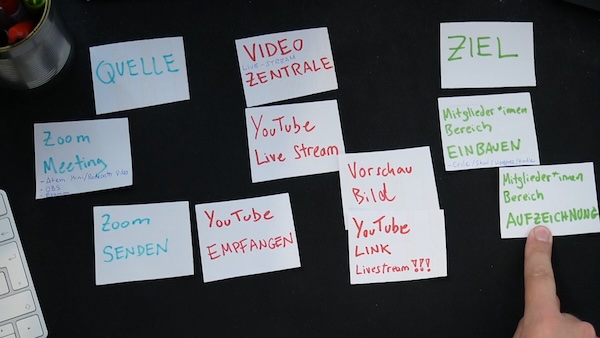 QUELLE
VIDEO
LIVE-STREAM
ZENTRALE
ZIEL
Zoom
Meeting
- OBS
YouTube
Live Stream
Mitglieder*innen
Bereich
EINBAUEN
Vorschau
Bild
Mitglieder*innen
Bereich
AUFZEICHNUNG
Zoom
SENDEN
YouTube
EMPFANGEN
YouTube
LINK
Livestream???